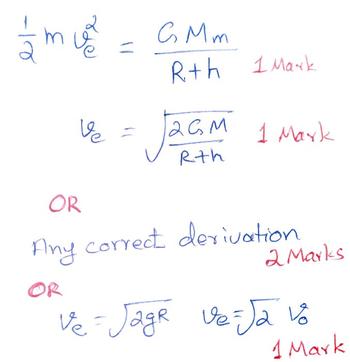 ½ m v_e² = G M m / (R+h) 1 Mark
v_e = √(2GM / (R+h)) 1 Mark
OR
Any correct derivation
2 Marks
OR
v_e = √2gR v_e = √2 v_o
1 Mark